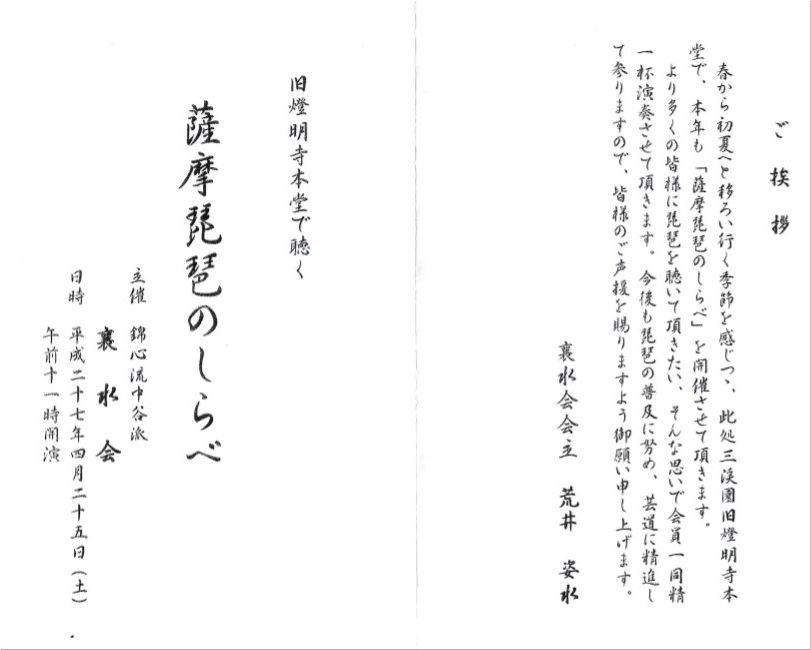 ご挨拶
春から初夏へと移ろい行く季節を感じつゝ、此処三渓園旧燈明寺本
堂で、本年も「薩摩琵琶のしらべ」を開催させて頂きます。
より多くの皆様に琵琶を聴いて頂きたい、そんな思いで会員一同精
一杯演奏させて頂きます。今後も琵琶の普及に努め、芸道に精進し
て参りますので、皆様のご声援を賜りますよう御願い申し上げます。
襄水会会主 荒井 姿水
旧燈明寺本堂で聴く
薩摩琵琶のしらべ
主催 錦心流中谷派
襄水会
日時 平成二十七年四月二十五日(土)
午前十一時開演